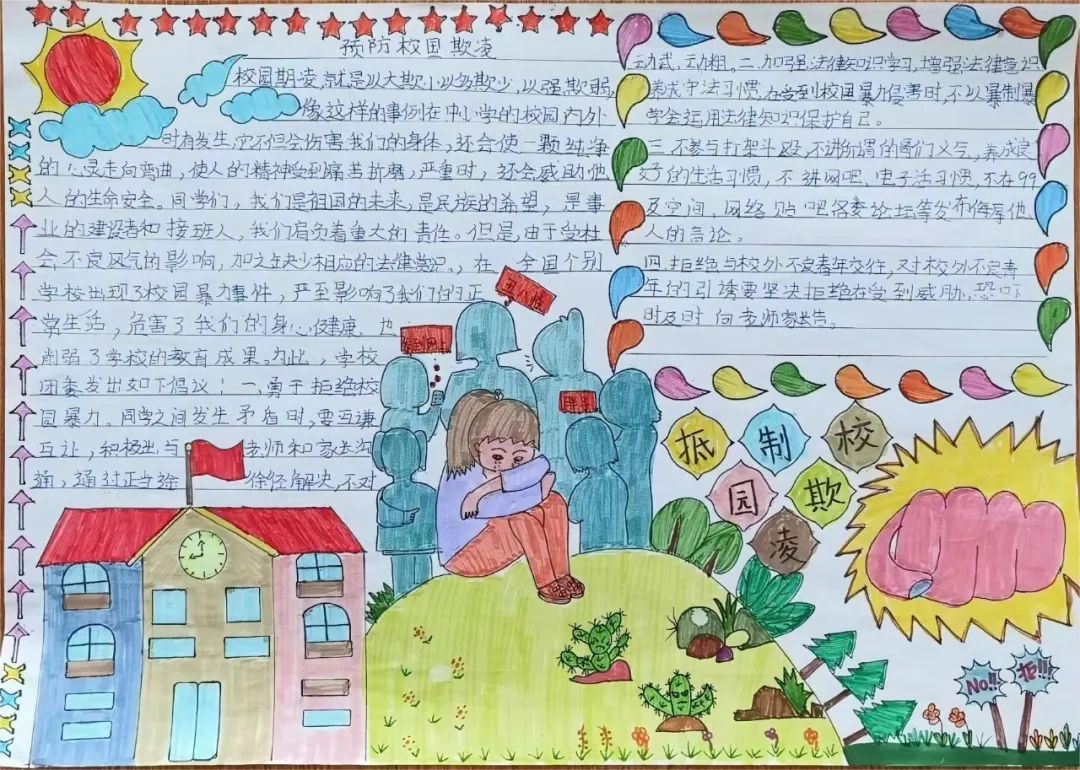 预防校园欺凌
校园期凌,就是以大欺小以多欺少,以强欺弱,
像这样的事例在中小学的校园内外
时有发生,它不但会伤害我们的身体,还会使一颗纯净
的心灵走向弯曲,使人的精神受到痛苦折磨,严重时,还会威助他
人的生命安全。同学们,我们是祖国的未来,是民族的希望,是事
业的建设者和接班人,我们肩负着重大的责任。但是,由于受社
会不良风气的影响,加之缺少相应的法律常识。,在全国个别
学校出现了校园暴力事件,严至影响了我们的正
常生活,危害了我们的身心健康,也
削弱了学校的教育成果。为此,学校
团委发出如下倡议!一、勇于拒绝校
园暴力。同学之间发生矛盾时,要互谦
互让,积极出与老师和家长沟
通,通过正当途徐径解决,不对
动武、动粗。二、加强法律知识学习,增强法律意识
养成守法习惯,在受到校园暴力侵害时,不以暴制暴
学会运用法律知识保护自己。
三、不参与打架斗殴,不讲所谓的哥们义气,养成良
好的生活习惯,不进网吧、电子活习惯,不在99
及空间、网络贴吧各委论坛等发布侮辱他
人的言论。
四、拒绝与校外不良青年交往,对校外不良青
年的引诱要坚决拒绝在受到威胁、恐吓
时及时向老师家长告。
丑八怪
胖子
抵制校
园欺
凌
No!!
拒!!!